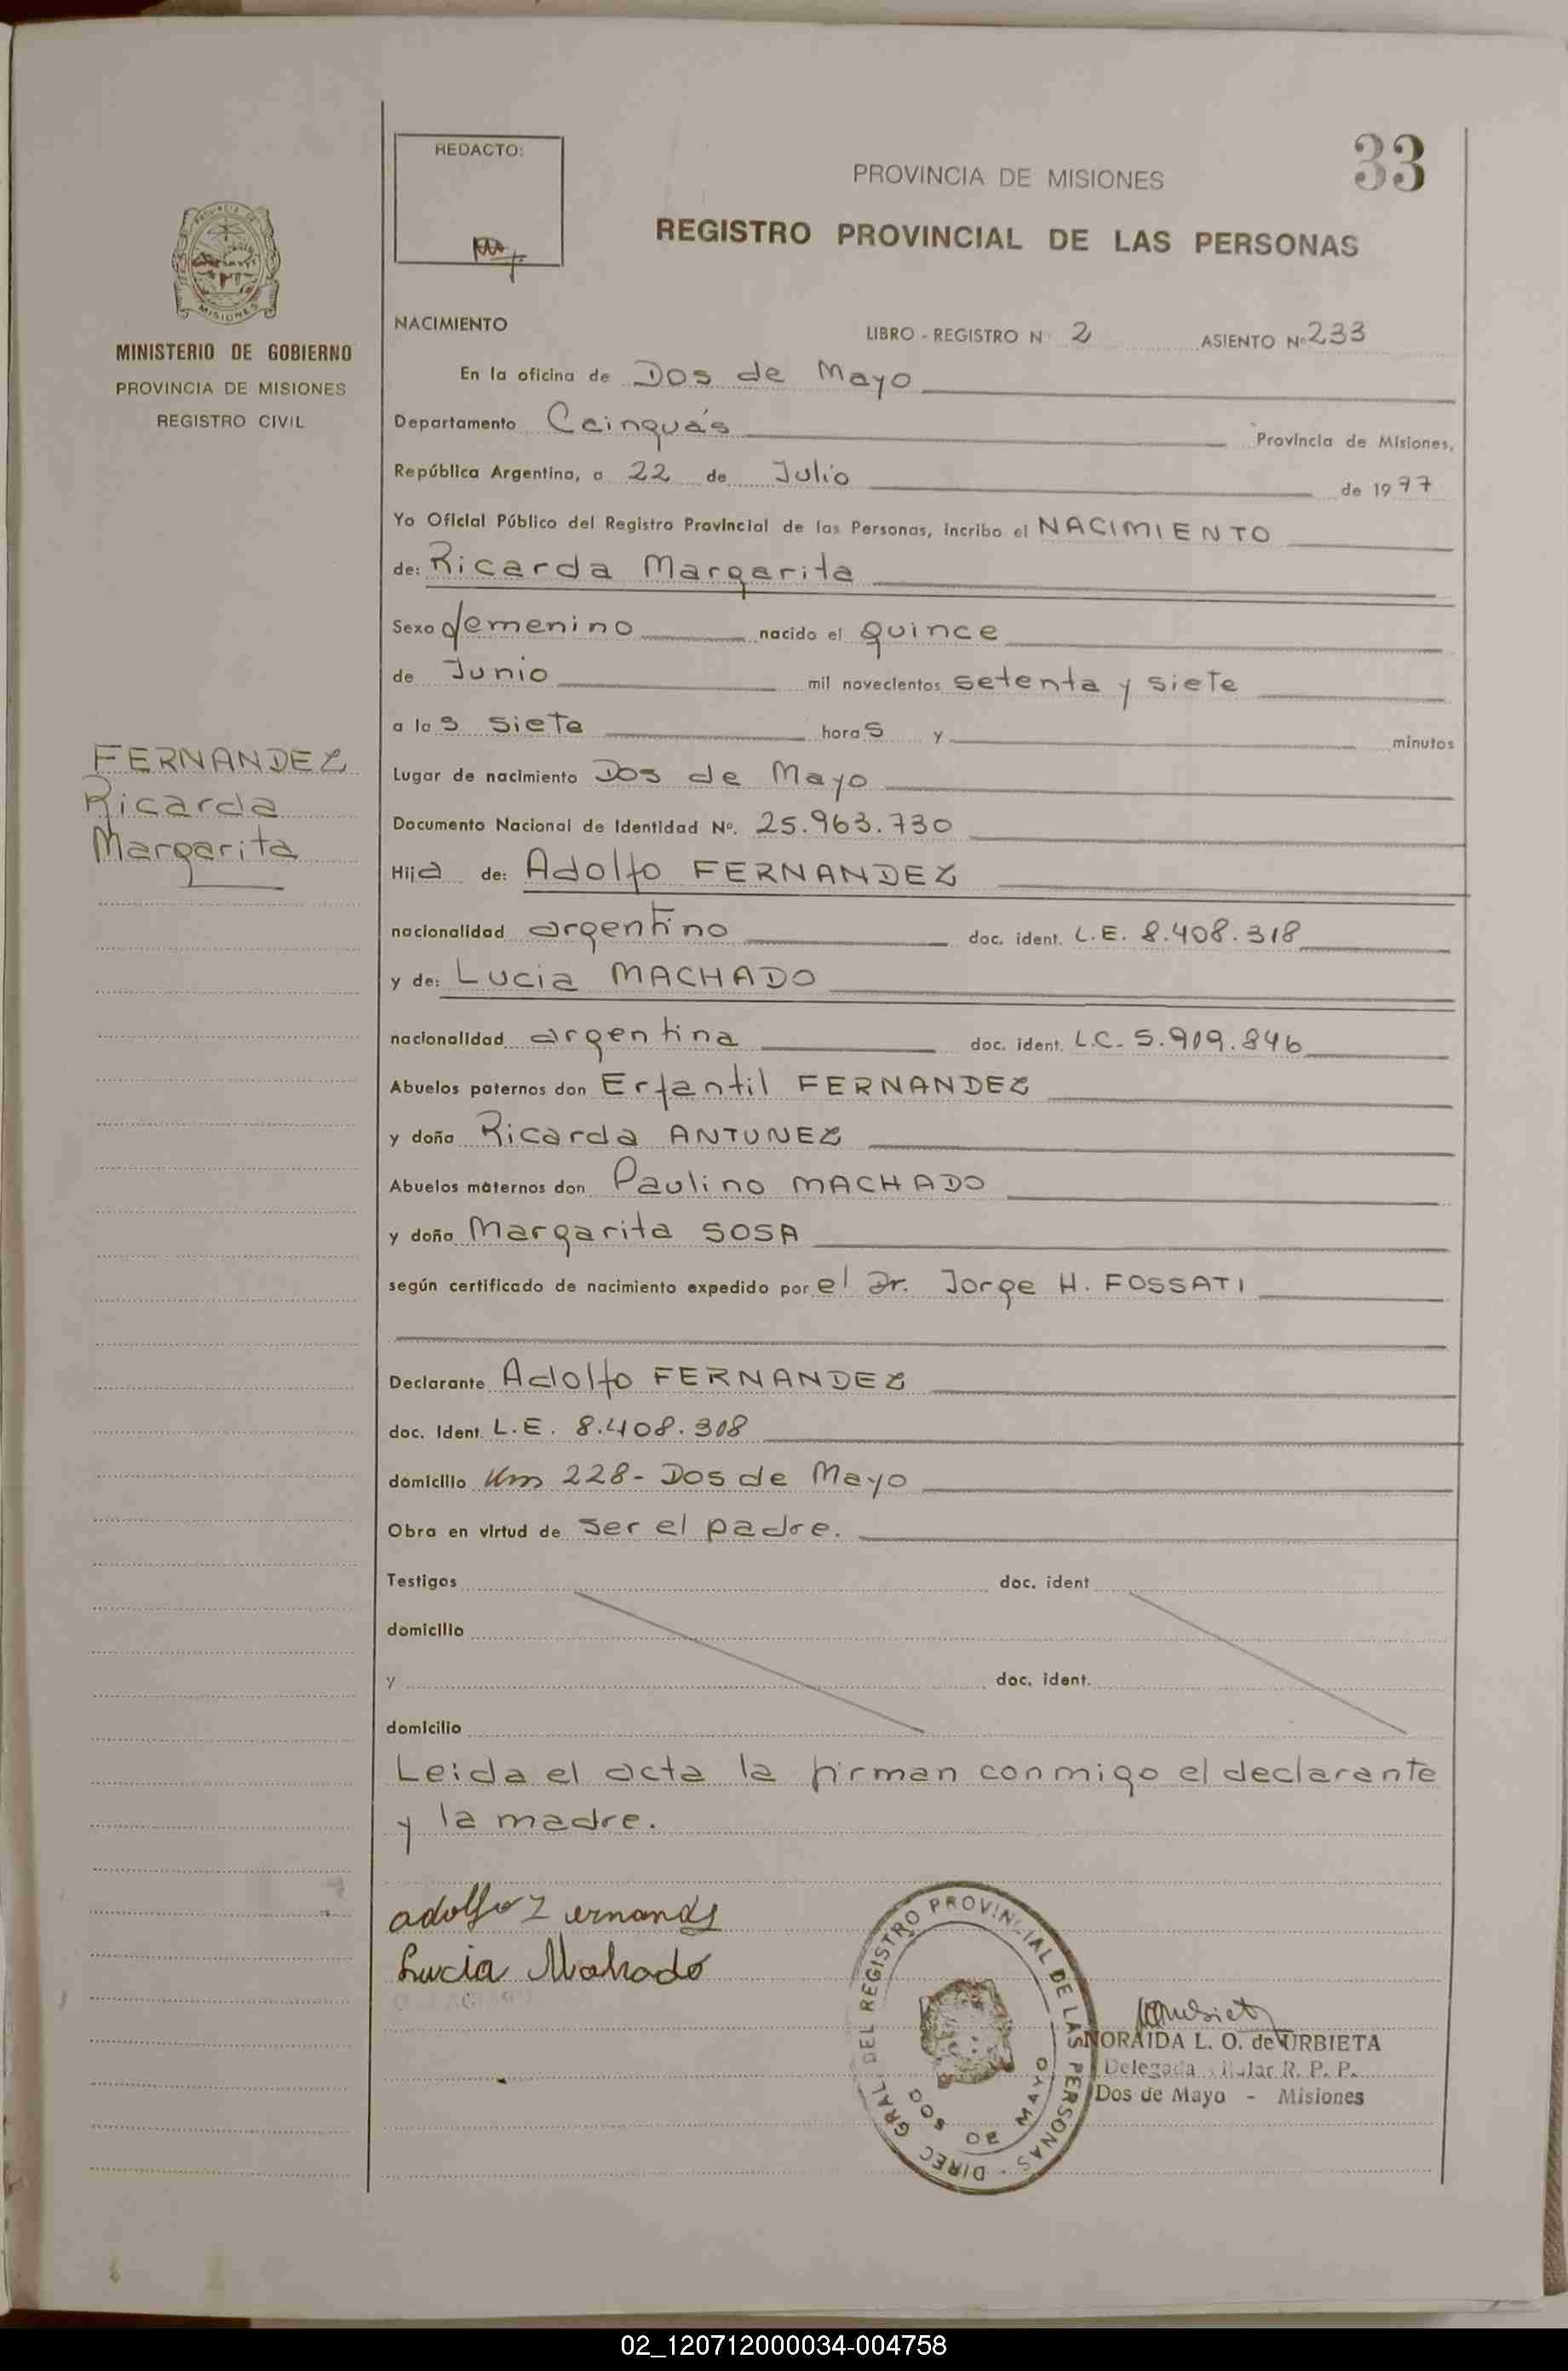 REDACTO:
33
PROVINCIA DE MISIONES
REGISTRO PROVINCIAL DE LAS PERSONAS
PROVINCIA DE
MISIONES
MINISTERIO DE GOBIERNO
PROVINCIA DE MISIONES
REGISTRO CIVIL
NACIMIENTO LIBRO - REGISTRO N 2 ASIENTO Nº 233
En la oficina de Dos de Mayo
Departamento Cainguás Provincia de Misiones,
República Argentina, a 22 de Julio de 1977
Yo Oficial Público del Registro Provincial de las Personas, incribo el NACIMIENTO
de: Ricarda Margarita
Sexo femenino nacido el quince
de Junio mil novecientos setenta y siete
a las siete horas y minutos
FERNANDEZ
Ricarda
Margarita
Lugar de nacimiento Dos de Mayo
Documento Nacional de Identidad Nº. 25.963.730
Hija de: Adolfo FERNANDEZ
nacionalidad argentino doc. ident. L.E. 8.408.318
y de: Lucia MACHADO
nacionalidad argentina doc. ident. L.C. 5.909.846
Abuelos paternos don Erfantil FERNANDEZ
y doña Ricarda ANTUNEZ
Abuelos maternos don Paulino MACHADO
y doña Margarita SOSA
según certificado de nacimiento expedido por el Dr. Jorge H. FOSSATI
Declarante Adolfo FERNANDEZ
doc. Ident. L.E. 8.408.308
domicilio Km 228 - Dos de Mayo
Obra en virtud de ser el padre.
Testigos doc. ident
domicilio
y doc. ident.
domicilio
Leida el acta la firman conmigo el declarante
y la madre.
adolfo Fernandez
Lucia Mahado
DIREC GRAL. DEL REGISTRO PROVINCIAL DE LAS PERSONAS
DOS DE MAYO
NORAIDA L. O. de URBIETA
Delegada Titular R. P. P.
Dos de Mayo - Misiones
02_120712000034-004758